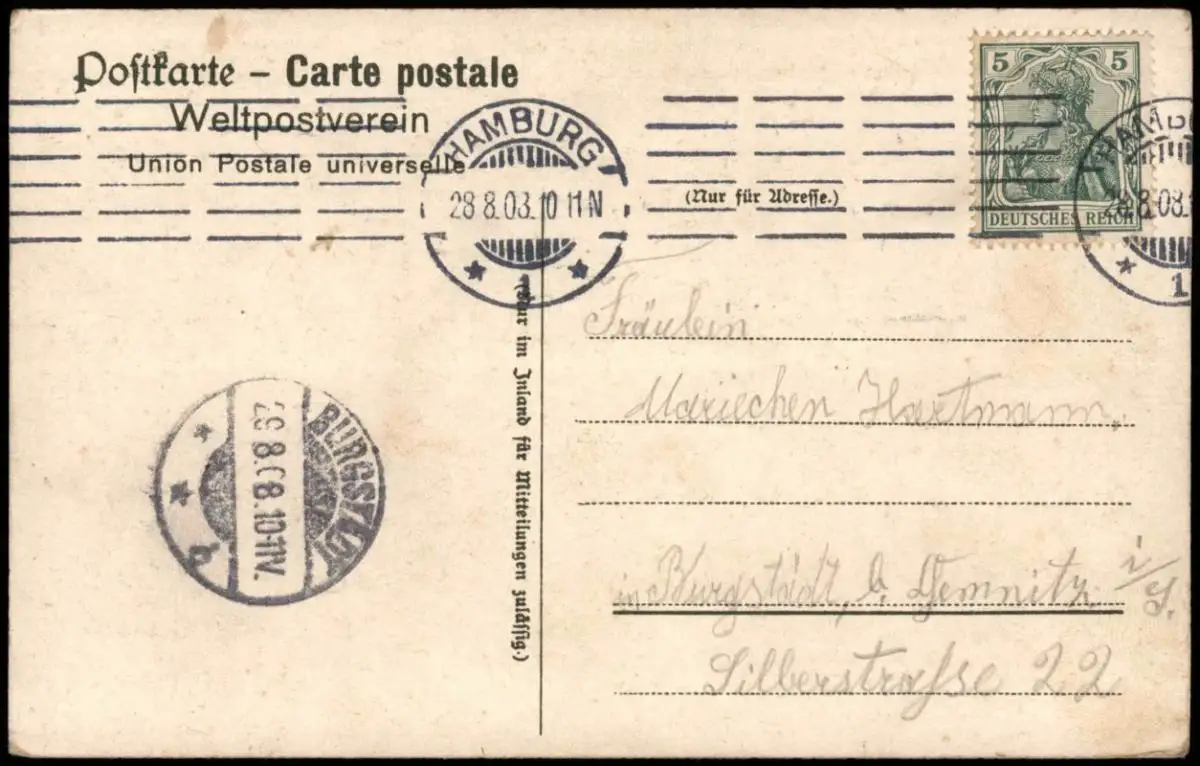 Postkarte – Carte postale
Weltpostverein
Union Postale universelle
HAMBURG
28 8.08. 10 11 N
(Nur für Adresse.)
5 5
DEUTSCHES REICH
HAMB
8.08.
1
(Nur im Inland für Mitteilungen zulässig.)
BURGSTÄDT
29.8.08.10-11V.
b
Fräulein
Mariechen Hartmann,
in Burgstädt, b. Chemnitz i/S.
Silberstraße 22